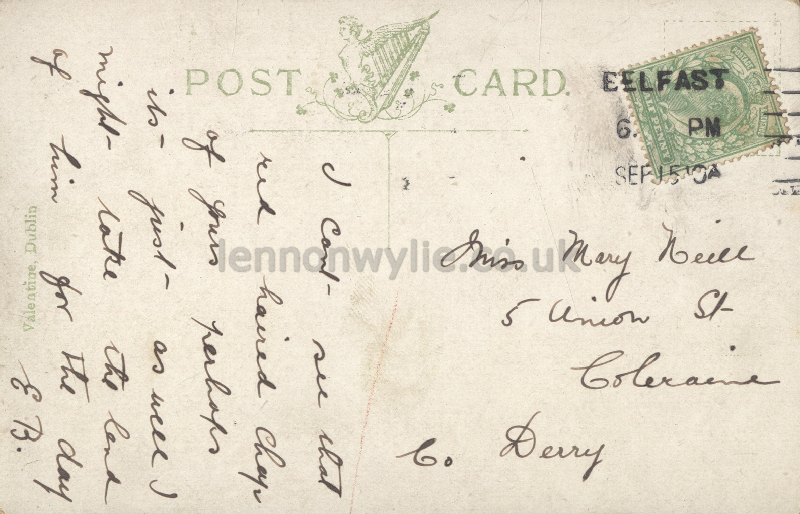 POST CARD.
BELFAST
6. PM
SEP 15
I cant see that
red haired Chap
of yours perhaps
its just as well I
might take the lend
of him for the day
E B.
Miss Mary Neill
5 Union St
Coleraine
Co Derry
Valentine, Dublin
lennonwylie.co.uk